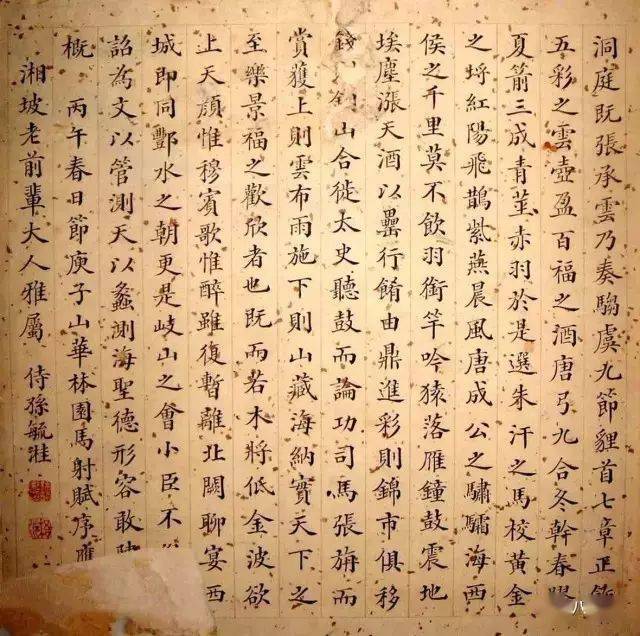 洞庭既張承雲乃奏騶虞九節貍首七章正
五彩之雲壺盈百福之酒唐弓九合冬幹春膠
夏箭三成青莖赤羽於是選朱汗之馬校黃金
之埒紅陽飛鵲紫燕晨風唐成公之驌驦海西
侯之千里莫不飲羽銜竿吟猿落雁鐘鼓震地
埃塵漲天酒以罍行餚由鼎進彩則錦市俱移
錢山合徙太史聽鼓而論功司馬張旃而
賞獲上則雲布雨施下則山藏海納實天下之
至樂景福之歡欣者也既而若木將低金波欲
上天顏惟穆賓歌惟醉雖復暫離北闕聊宴西
城即同酆水之朝更是岐山之會小臣不
詔為文以管測天以蠡測海聖德形容敢
概 丙午春日節庾子山華林園馬射賦序應
湘坡老前輩大人雅屬 侍孫毓溎
八